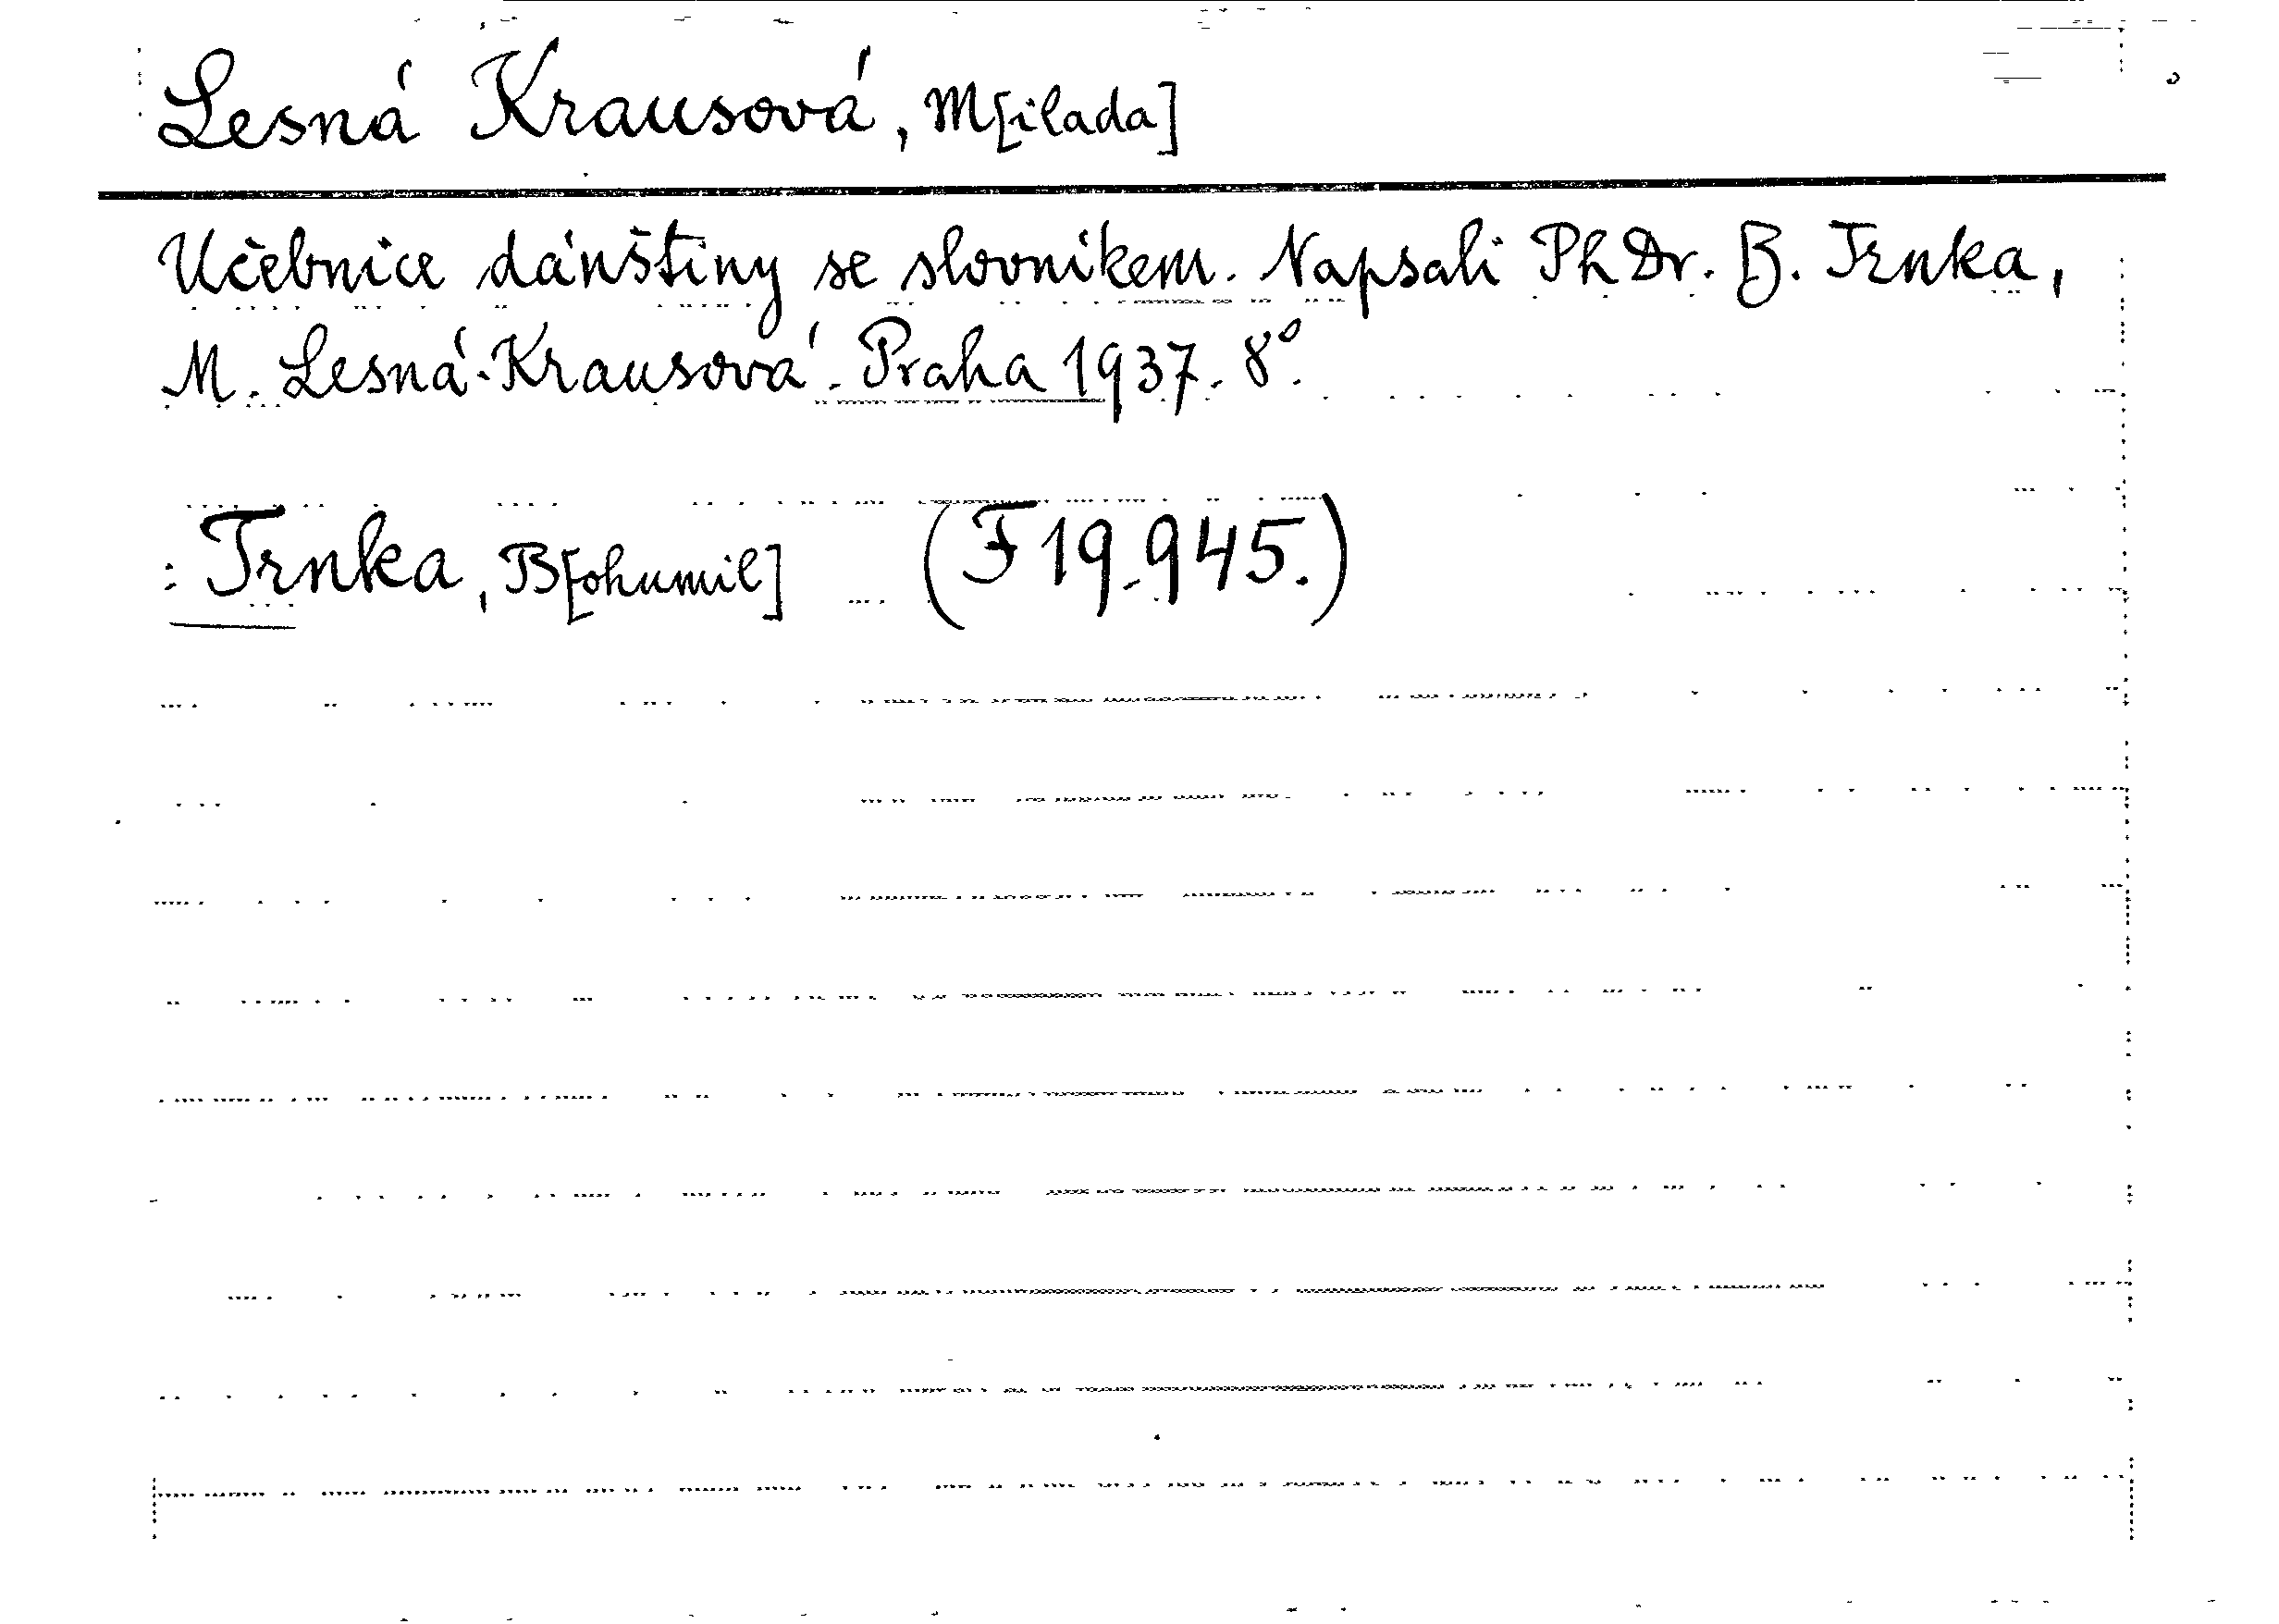 Lesná Krausová, M[ilada]
Učebnice dánštiny se slovníkem. Napsali PhDr. B. Trnka,
M. Lesná-Krausová. Praha 1937. 8º.
: Trnka, B[ohumil] (F 19.945.)